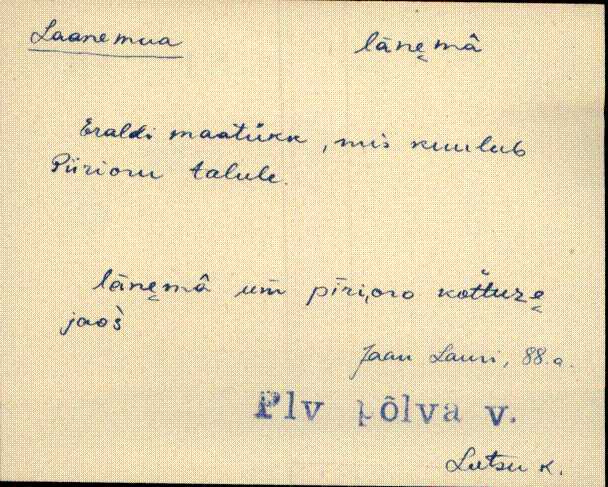 Laanemua lāne̬mâ
Eraldi maatükk, mis kuulub
Piirioru talule.
lāne̬mâ um̄ pīri,oro kot̄tuze̬
jaòš
Jaan Lauri, 88.a.
Plv Põlva v.
Lutsu k.